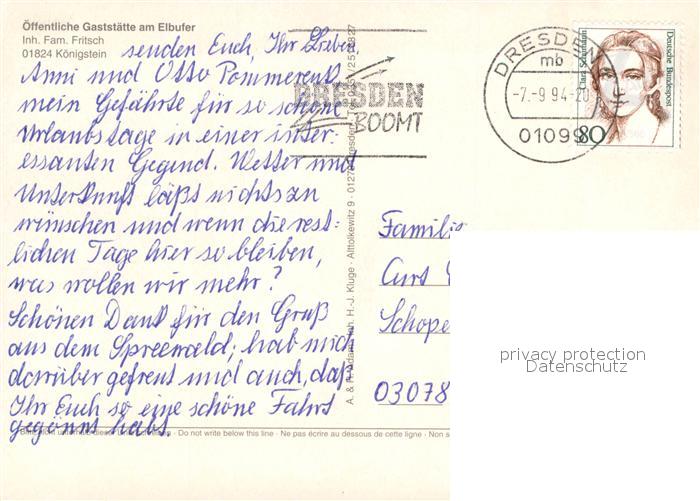 Öffentliche Gaststätte am Elbufer
Inh. Fam. Fritsch
01824 Königstein
senden Euch, Ihr Lieben
Anni und Otto Pommerenk
mein Gefährte für so schöne
Urlaubstage in einer inter-
essanten Gegend. Wetter und
Unterkunft läßt nichts zu
wünschen und wenn die rest-
lichen Tage hier so bleiben,
was wollen wir mehr?
Schönen Dank für den Gruß
aus dem Spreewald; hab mich
darüber gefreut und auch, daß
Ihr Euch so eine schöne Fahrt
gegönnt habt.
DRESDEN
BOOMT
DRESDEN
mb
-7.-9 94-20
01099
Clara Schumann
Deutsche Bundespost
80
A. & R. Adam, Inh. H.-J. Kluge · Alttolkewitz 9 · 01279 Dresden
Familie
Curt
Schope
03078
privacy protection
Datenschutz
Do not write below this line · Ne pas écrire au dessous de cette ligne · Non s